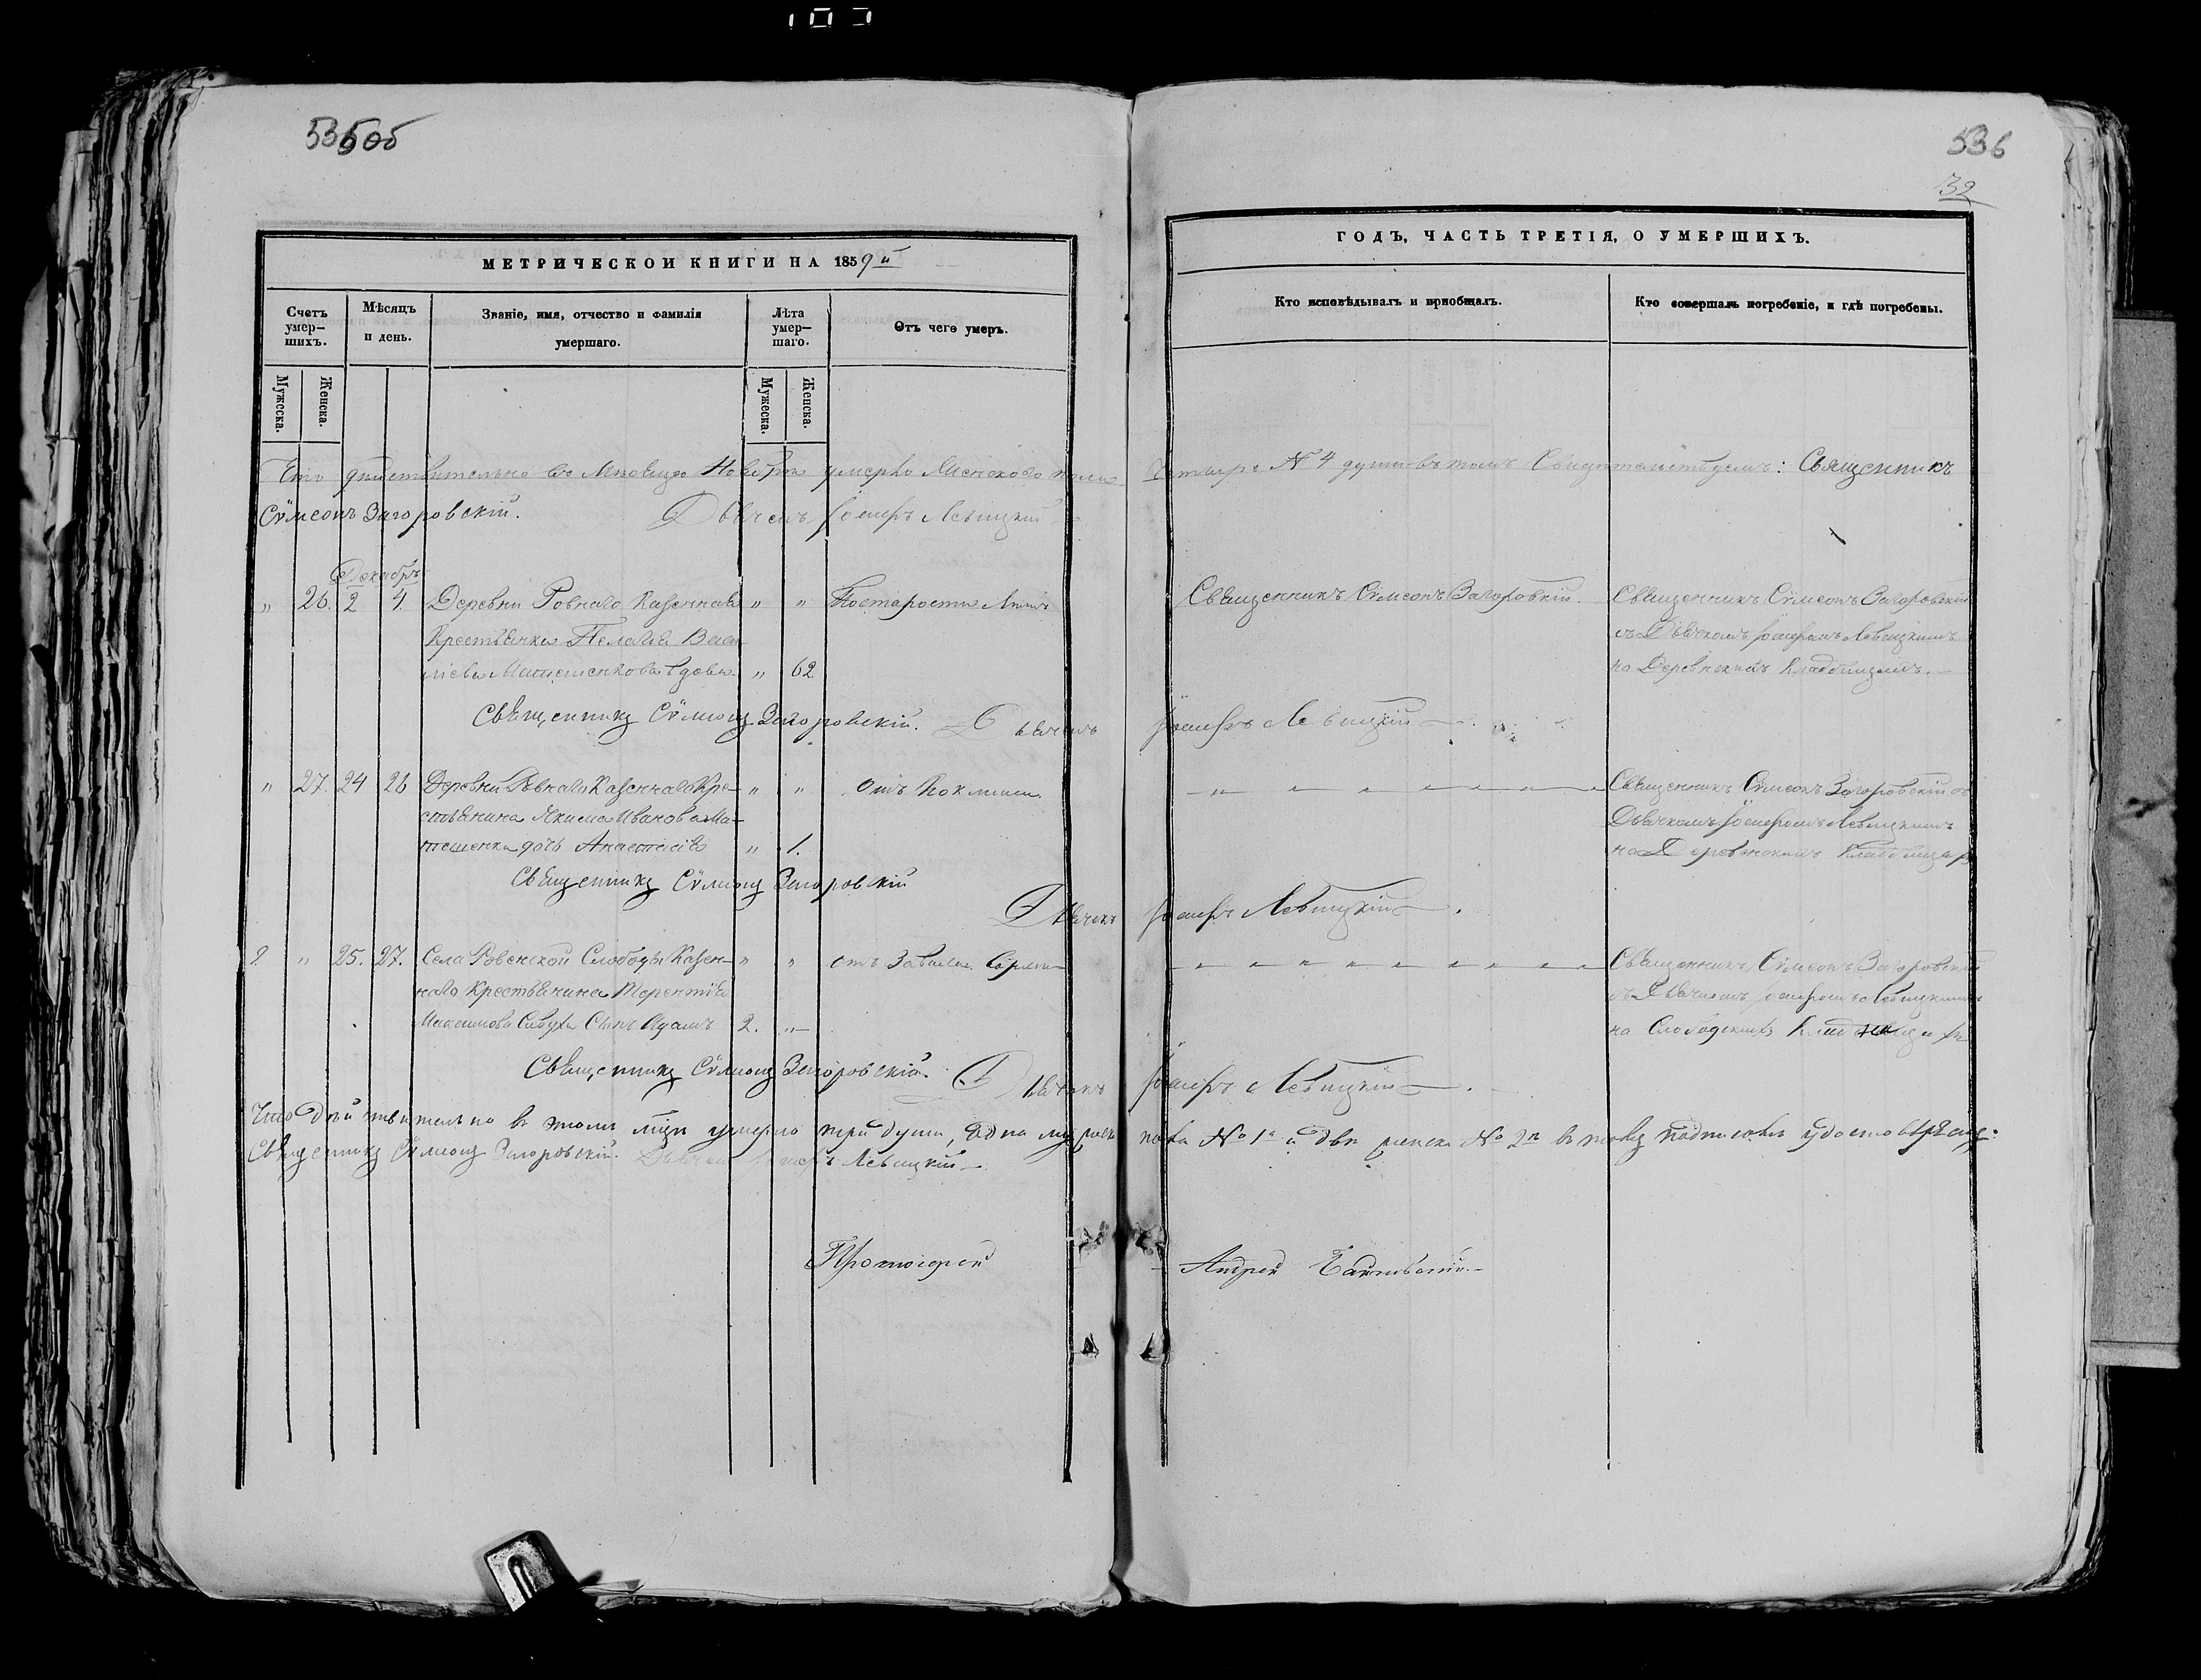 535об
536
32
МЕТРИЧЕСКОЙ КНИГИ НА 1859й
ГОДЪ, ЧАСТЬ ТРЕТІЯ, О УМЕРШИХЪ.
Счетъ умер—шихъ.
Мѣсяцъ и день.
Званіе, имя, отчество и фамилія умершаго.
Лѣта умер—шаго.
Отъ чего умеръ.
Кто исповѣдывалъ и приобщалъ.
Кто совершалъ погребеніе, и гдѣ погребены.
Мужеска.
Женска.
Мужеска.
Женска.
Что дѣйствительно въ Мѣсяцѣ Ноябрѣ умерло Женскаго пола
четыре № 4 души въ томъ свидѣтельствуемъ: Священникъ
Сѵмеонъ Загоровскій. Дьячекъ Іосифъ Левицкій
Декабрь
„ 26. 2 4 Деревни Ровнаго Казеннаго „ „ По старости лѣтъ
Крестьянка Пелагія Васи
ліева вдова „ 62
Священникъ Сѵмеонъ Загоровскій.
Священникъ Сѵмеонъ Загоровскій
съ Дьячкомъ Іосифомъ Левицкимъ
на Деревенскомъ кладбищѣ.
Священникъ Сѵмеонъ Загоровскій. Дьячекъ Іосифъ Левицкій
„ 27. 24 26 Деревни Ровнаго Казеннаго Кре— „ „ Отъ
стьянина Якима Иванова Ма—
тешенка дочь Анастасія „ 1.
Священникъ Сѵмеонъ Загоровскій съ
Дьячкомъ Іосифомъ Левицкимъ
на Деревенскомъ Кладбищѣ
Священникъ Сѵмеонъ Загоровскій
Дьячекъ Іосифъ Левицкій.
2. „ 25. 27. Села Ровенской Слободы Казен— „ „ отъ
наго Крестьянина Терентія
Максимова сынъ Адамъ 2. „
Священникъ Сѵмеонъ Загоровскій
съ Дьячкомъ Іосифомъ Левицкимъ
на Слободскомъ Кладбищѣ
Священникъ Сѵмеонъ Загоровскій. Дьячекъ Іосифъ Левицкій.
Что дѣйствительно въ томъ умерло три души, одна мужеска
пола № 1й и двѣ женска № 2й въ томъ подписомъ удостовѣряемъ:
Священникъ Сѵмеонъ Загоровскій. Дьячекъ Іосифъ Левицкій
Протоіерей Андрей